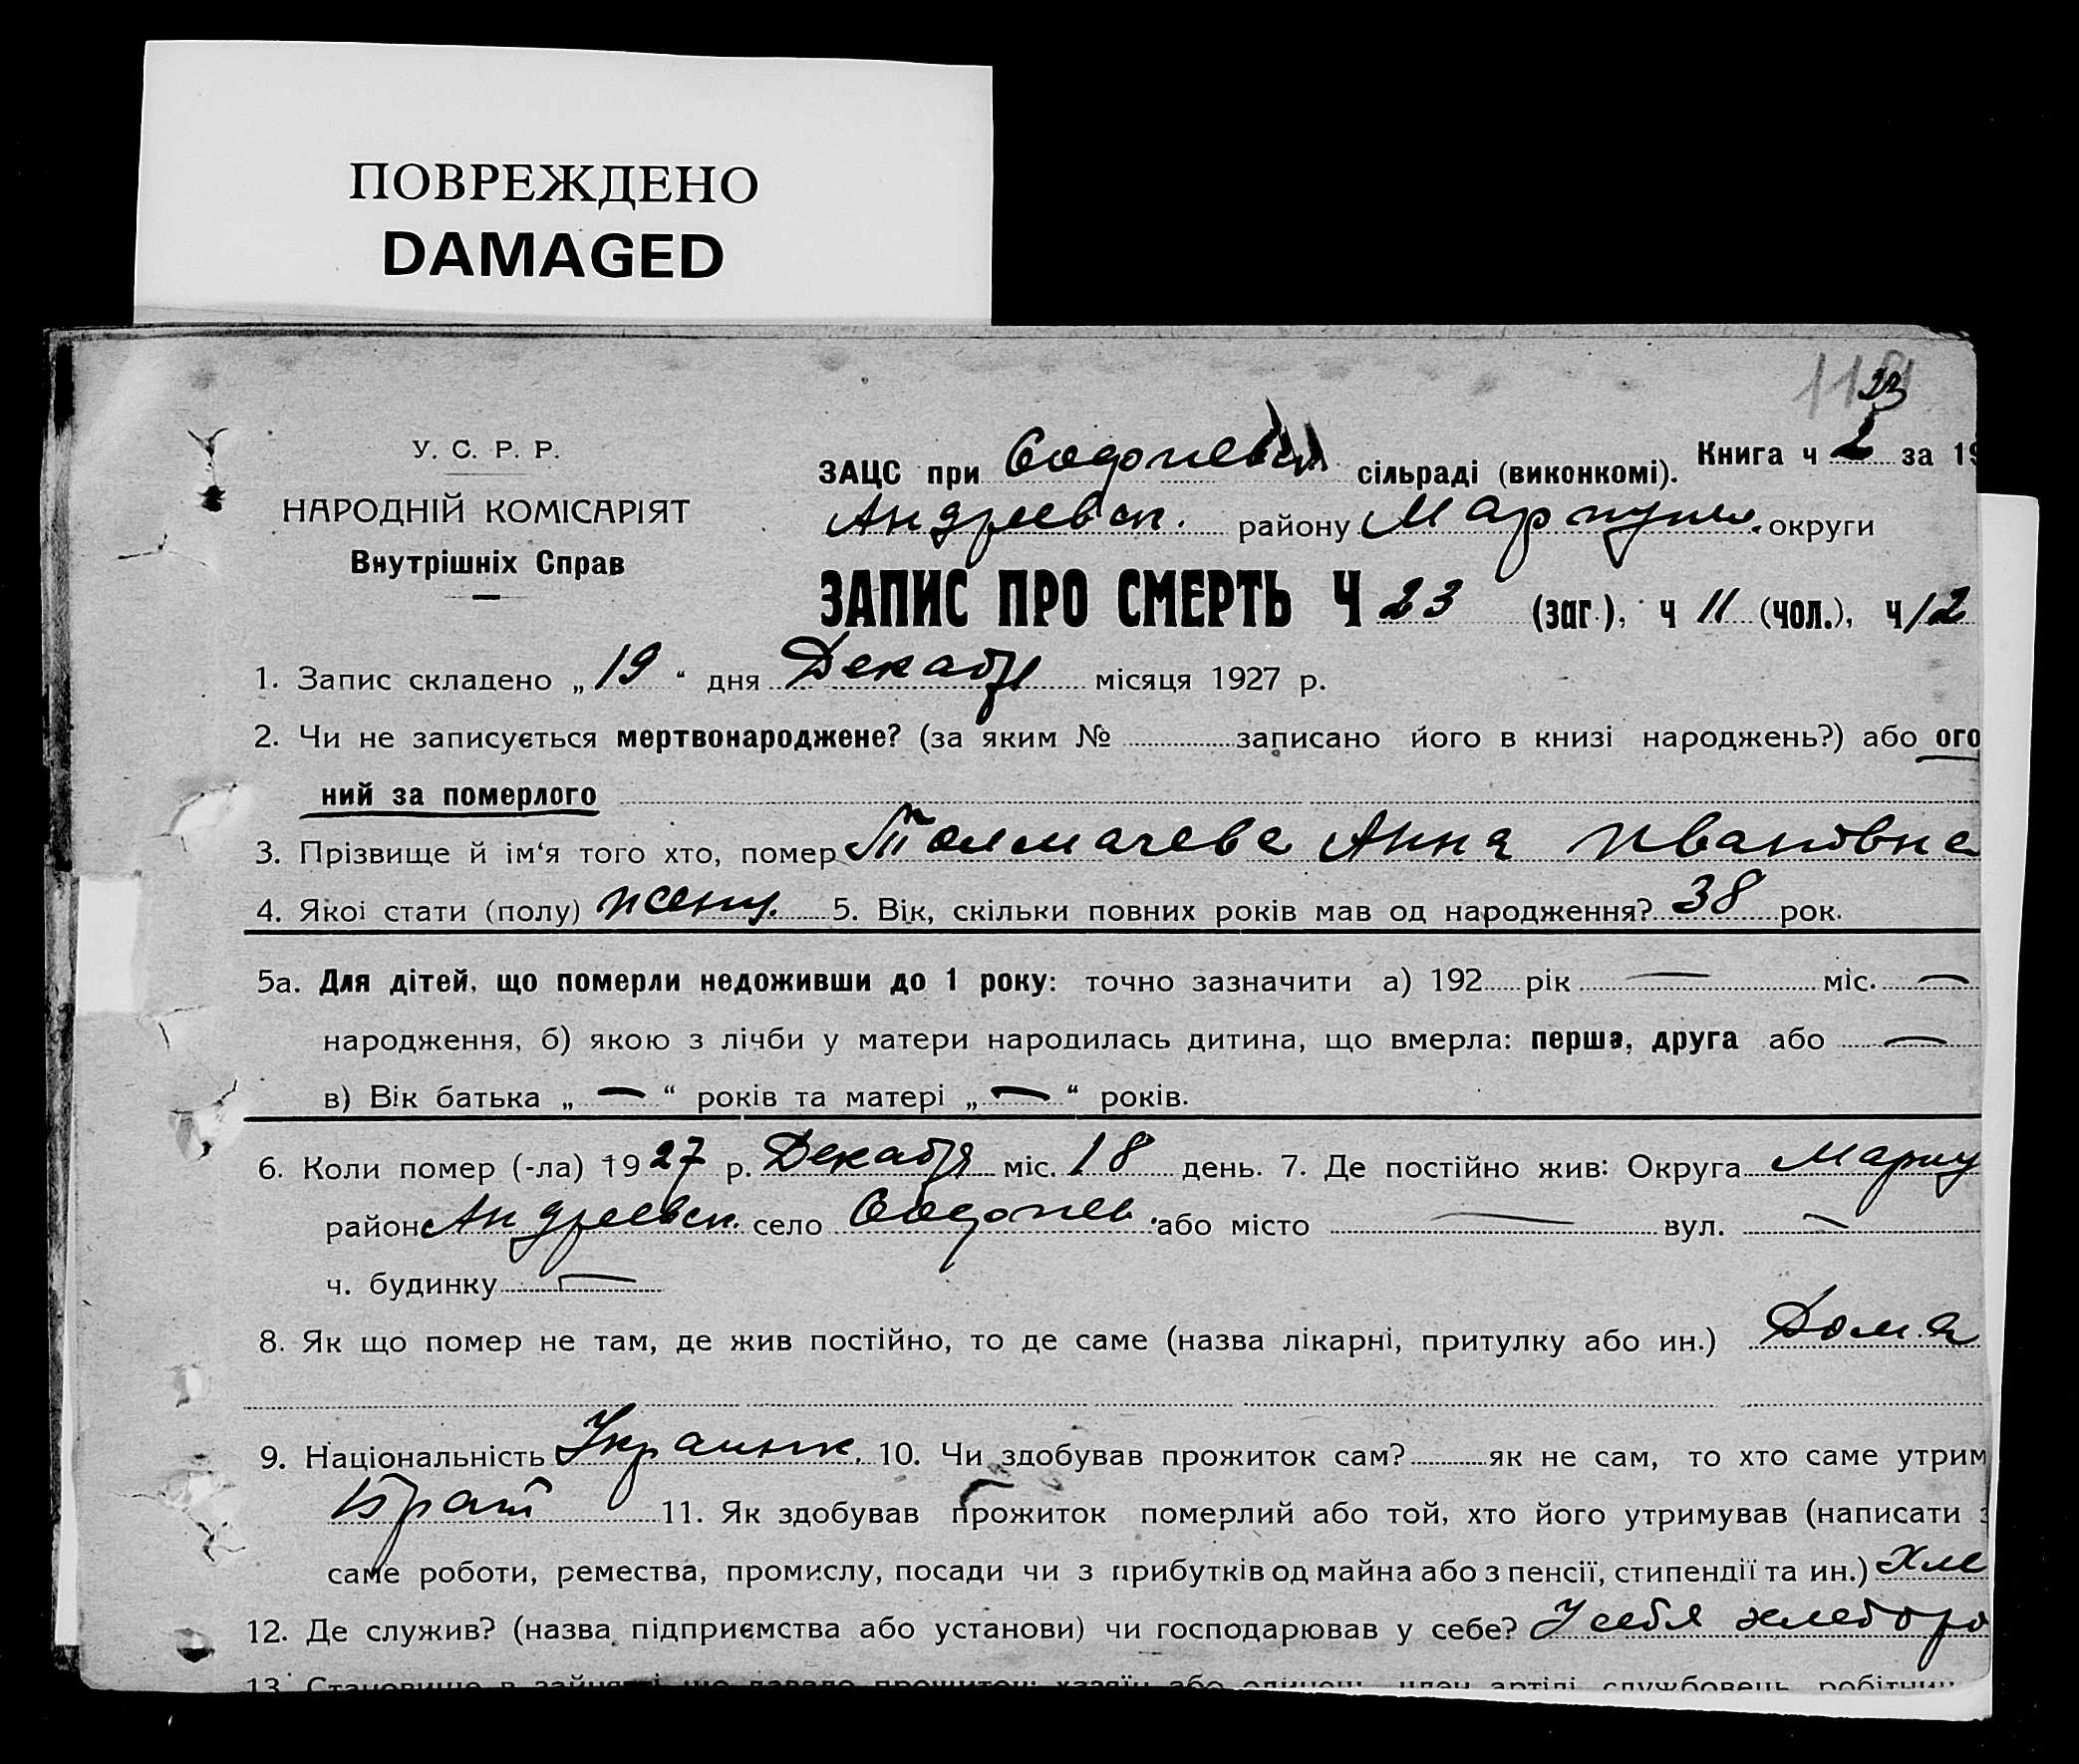 ПОВРЕЖДЕНО
DAMAGED
У. С. Р. Р.
НАРОДНІЙ КОМІСАРІЯТ
Внутрішніх Справ
Книга ч 2 за 19
ЗАЦС при сільраді (виконкомі).
Андреевск. району Мариупил. округи
ЗАПИС ПРО СМЕРТЬ Ч 23 (заг.), ч 11 (чол.), ч 12
1. Запис складено „19“ дня Декабря місяця 1927 р.
2. Чи не записується мертвонароджене? (за яким № записано його в книзі народжень?) або ого
ний за померлого
3. Прізвище й ім'я того хто, помер Толмачева Анна Ивановна
4. Якоі стати (полу) женщ. 5. Вік, скільки повних років мав од народження? 38 рок.
5а. Для дітей, що померли недоживши до 1 року: точно зазначити а) 192 рік — міс. —
народження, б) якою з лічби у матери народилась дитина, що вмерла: перша, друга або —
в) Вік батька „ — “ років та матері „ — “ років.
6. Коли помер (-ла) 1927 р. Декабря міс. 18 день. 7. Де постійно жив: Округа Мариу
район Андреевск. село або місто — вул. —
ч. будинку —
8. Як що помер не там, де жив постійно, то де саме (назва лікарні, притулку або ин.) Дома
9. Національність Украинк. 10. Чи здобував прожиток сам? як не сам, то хто саме утрим
Брат 11. Як здобував прожиток померлий або той, хто його утримував (написати з
саме роботи, ремества, промислу, посади чи з прибутків од майна або з пенсії, стипендії та ин.) Хле
12. Де служив? (назва підприємства або установи) чи господарював у себе? У себя хлеборо
13. Становище в занятті що давало прожиток: хазяїн або одинець, член артілі службовець робітник